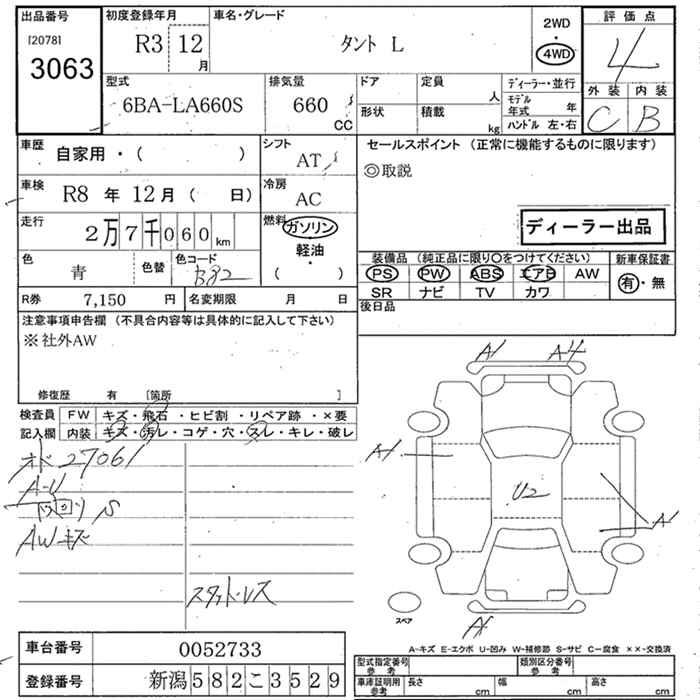 出品番号 初度登録年月 車名・グレード 2WD 評価点
[2078] R3 12月 タント L 4WD 4
3063
型式 排気量 ドア 定員 ディーラー・並行 外装 内装
6BA-LA660S 660 CC 人 モデル年式 年 C B
形状 積載 kg ハンドル 左・右
車歴 自家用・( ) シフト AT セールスポイント (正常に機能するものに限ります)
◎取説
車検 R8 年 12月 ( 日) 冷房 AC
走行 2万7千060km 燃料 ガソリン ディーラー出品
軽油
( ・ )
色 青 色替 色コード B82
装備品 (純正品に限り〇をつけてください) 新車保証書
PS PW ABS エアB AW 有・無
SR ナビ TV カワ
R券 7,150 円 名変期限 月 日 後日品
注意事項申告欄 (不具合内容等は具体的に記入して下さい)
※社外AW
修復歴 有 [箇所 ]
検査員 FW キズ・飛石・ヒビ割・リペア跡・×要
記入欄 内装 キズ・汚レ・コゲ・穴・スレ・キレ・破レ
オド 27061
A-U
S
AWキズ
スタッドレス
A1 A4
A1
U2
A1
スペア
A-キズ E-エクボ U-凹み W-補修跡 S-サビ C-腐食 ××-交換済
車台番号 0052733
登録番号 新潟582こ3529
型式指定番号 参考 類別区分番号 参考
車庫証明用 参考 長さ cm 幅 cm 高さ cm